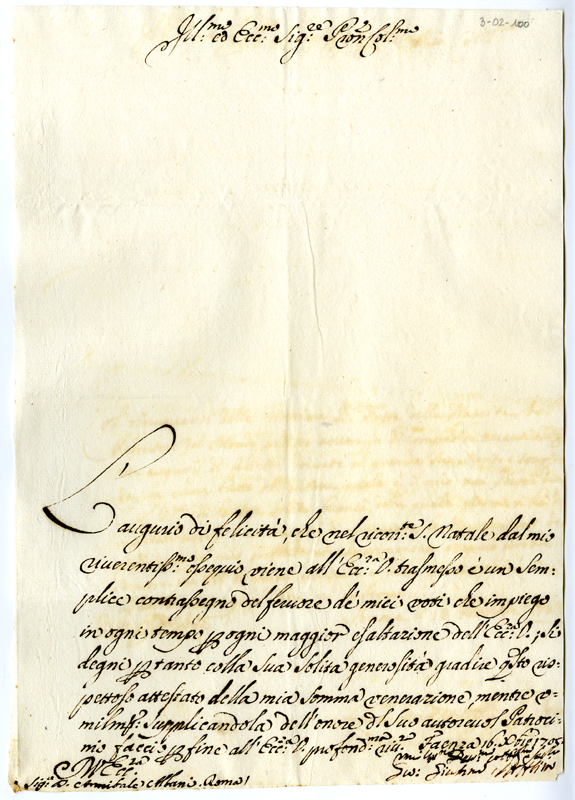 3-02-100
Ill:mo ed Ecc:mo Sig:re Pron Col:mo
L'augurio di felicità, che nel ricon:te S. Natale dal mio
riverentiss:mo ossequio viene all'Ecc:za V. trasmesso è un Sem=
plice contrassegno del fervore de' miei voti che impiego
in ogni tempo p ogni maggior esaltazione dell'Ecc:za V.; Si
degni p tanto colla Sua Solita generosità gradire qsto ris=
pettoso attestato della mia Somma venerazione, mentre v=
milm:te Supplicandola dell'onore di Suo autorevol Patroci=
nio faccio p fine all'Ecc:za V. profond:ma riv:za Faenza 16. Xbre 1705
D V Ecc:za
Sig:r D. Annibale Albani. Roma